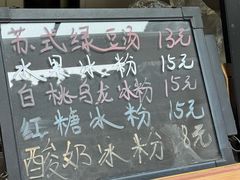 苏式绿豆汤 13元
水果冰粉 15元
白桃乌龙冰粉 15元
红糖冰粉 15元
酸奶冰粉 8元